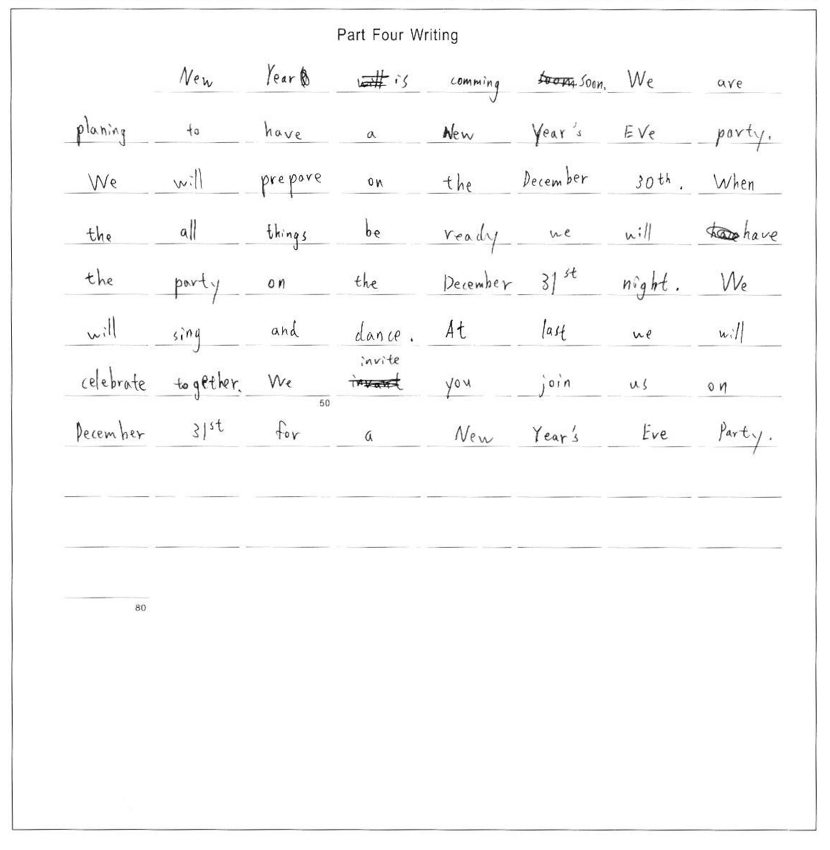 Part Four Writing
New Year is comming soon. We are
planing to have a New Year's Eve party.
We will prepare on the December 30th. When
the all things be ready we will have
the party on the December 31st night. We
will sing and dance. At last we will
invite
celebrate together. We you join us on
50
December 31st for a New Year's Eve Party.
80